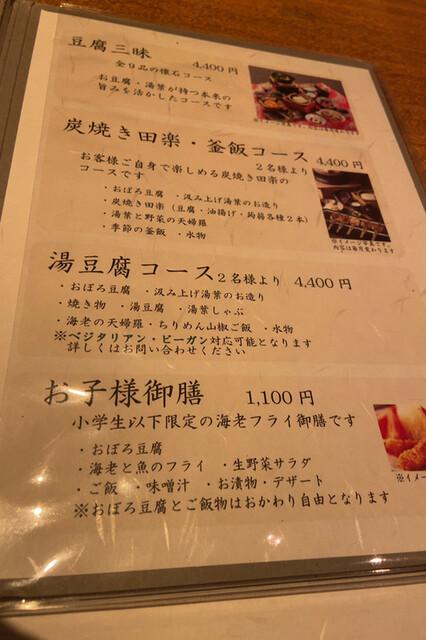 豆腐三昧 4,400円
全9品の懐石コース
お豆腐・湯葉が持つ本来の
旨みを活かしたコースです
炭焼き田楽・釜飯コース 4,400円
2名様より
お客様ご自身で楽しめる炭焼き田楽の
コースです
・おぼろ豆腐 ・汲み上げ湯葉のお造り
・炭焼き田楽(豆腐・油揚げ・蒟蒻各種2本)
・湯葉と野菜の天婦羅
・季節の釜飯 ・水物
※イメージ写真です。
内容は毎月変わります
湯豆腐コース 2名様より 4,400円
・おぼろ豆腐 ・汲み上げ湯葉のお造り
・焼き物 ・湯豆腐 ・湯葉しゃぶ
・海老の天婦羅・ちりめん山椒ご飯 ・水物
※ベジタリアン・ビーガン対応可能となります
詳しくはお問い合わせください
お子様御膳 1,100円
小学生以下限定の海老フライ御膳です
・おぼろ豆腐
・海老と魚のフライ ・生野菜サラダ
・ご飯 ・味噌汁 ・お漬物・デザート
※イメ
※おぼろ豆腐とご飯物はおかわり自由となります